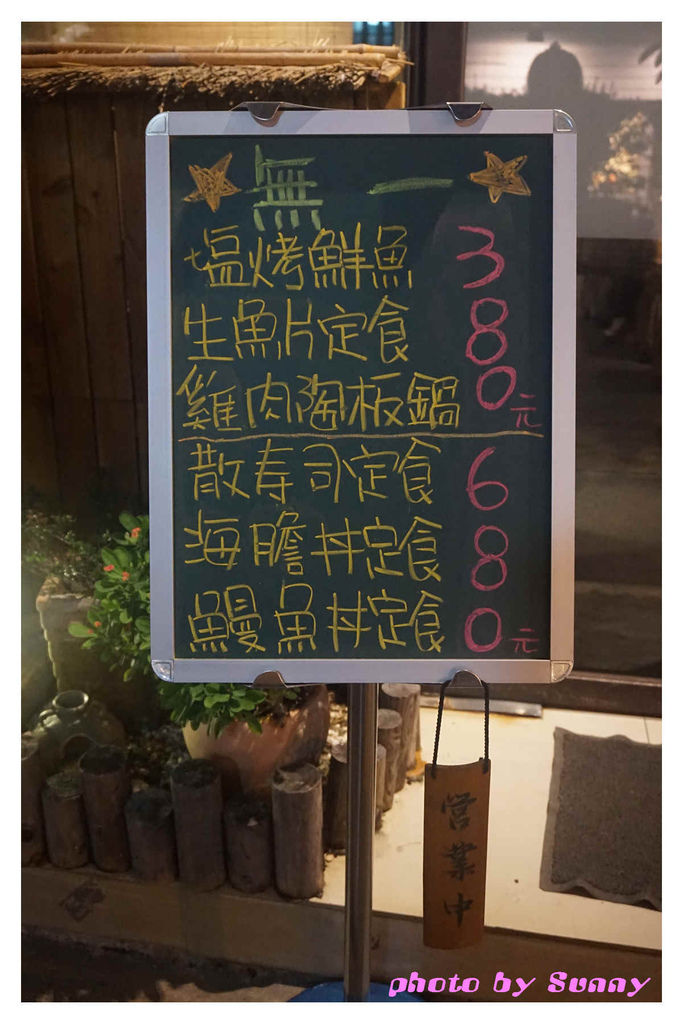 無一
塩烤鮮魚
生魚片定食
雞肉陶板鍋
380元
散寿司定食
海膽丼定食
鰻魚丼定食
680元
営業中
photo by Sunny